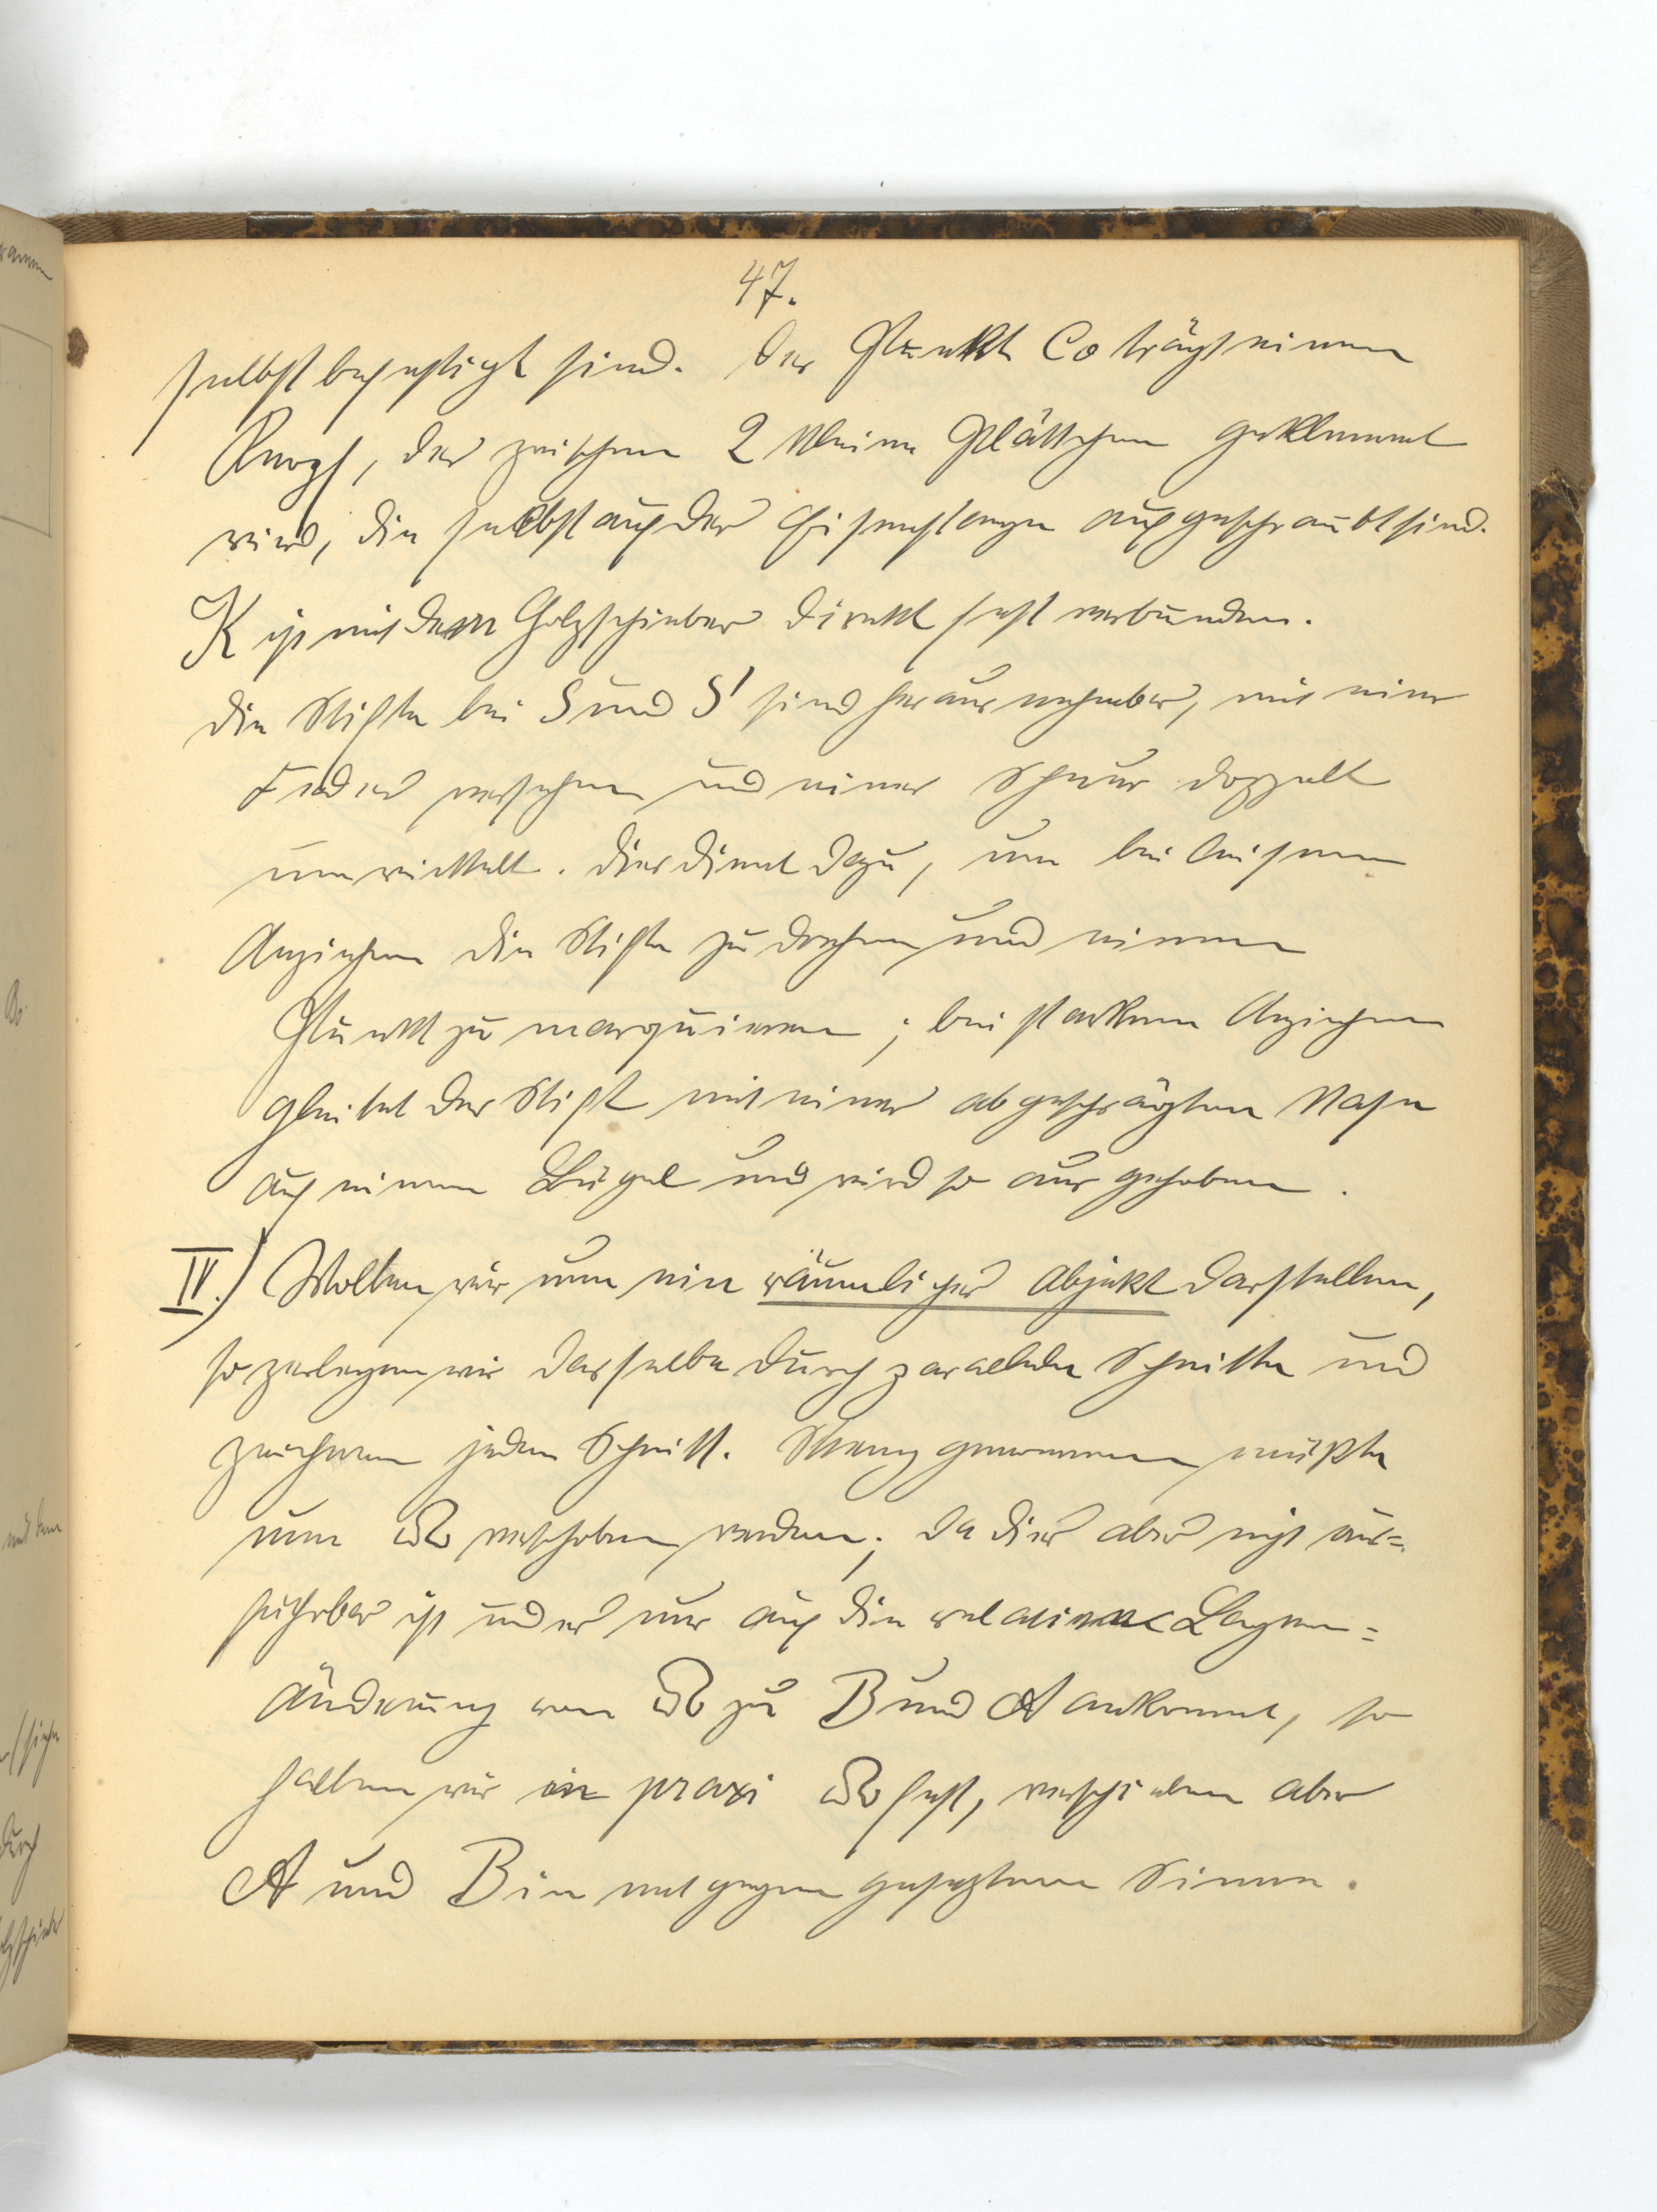 47.
selbst befestigt sind. Der Punkt Co trägt einen
Knopf, der zwischen 2 kleine Plättchen geklemmt
wird, die selbst auf der Eisenstange aufgeschraubt sind.
K ist mit dem Holzschieber direkt fest verbunden.
Die Stifte bei S und S' sind herausnehmbar, mit einer
Feder versehen und einer Schnur doppelt
umwickelt. Dies dient dazu, um bei leisem
Anziehen die Stifte zu drehen und einen
Punkt zu marquieren; bei starkem Anziehen
gleitet der Stift mit einer abgeschrägten Nase
auf einem Bügel und wird so ausgehoben.
IV.) Wollen wir nun ein räumliches Objekt darstellen,
so zerlegen wir dasselbe durch paralelle Schnitte und
zeichnen jeden Schnitt. Streng genommen müßte
nun verschoben werden; da dies aber nicht aus=
führbar ist und es nur auf die relative Lagen=
änderung von zu B und A ankommt, so
halten wir in praxi fest, verschieben aber
A und B im entgegengesetzten Sinne.